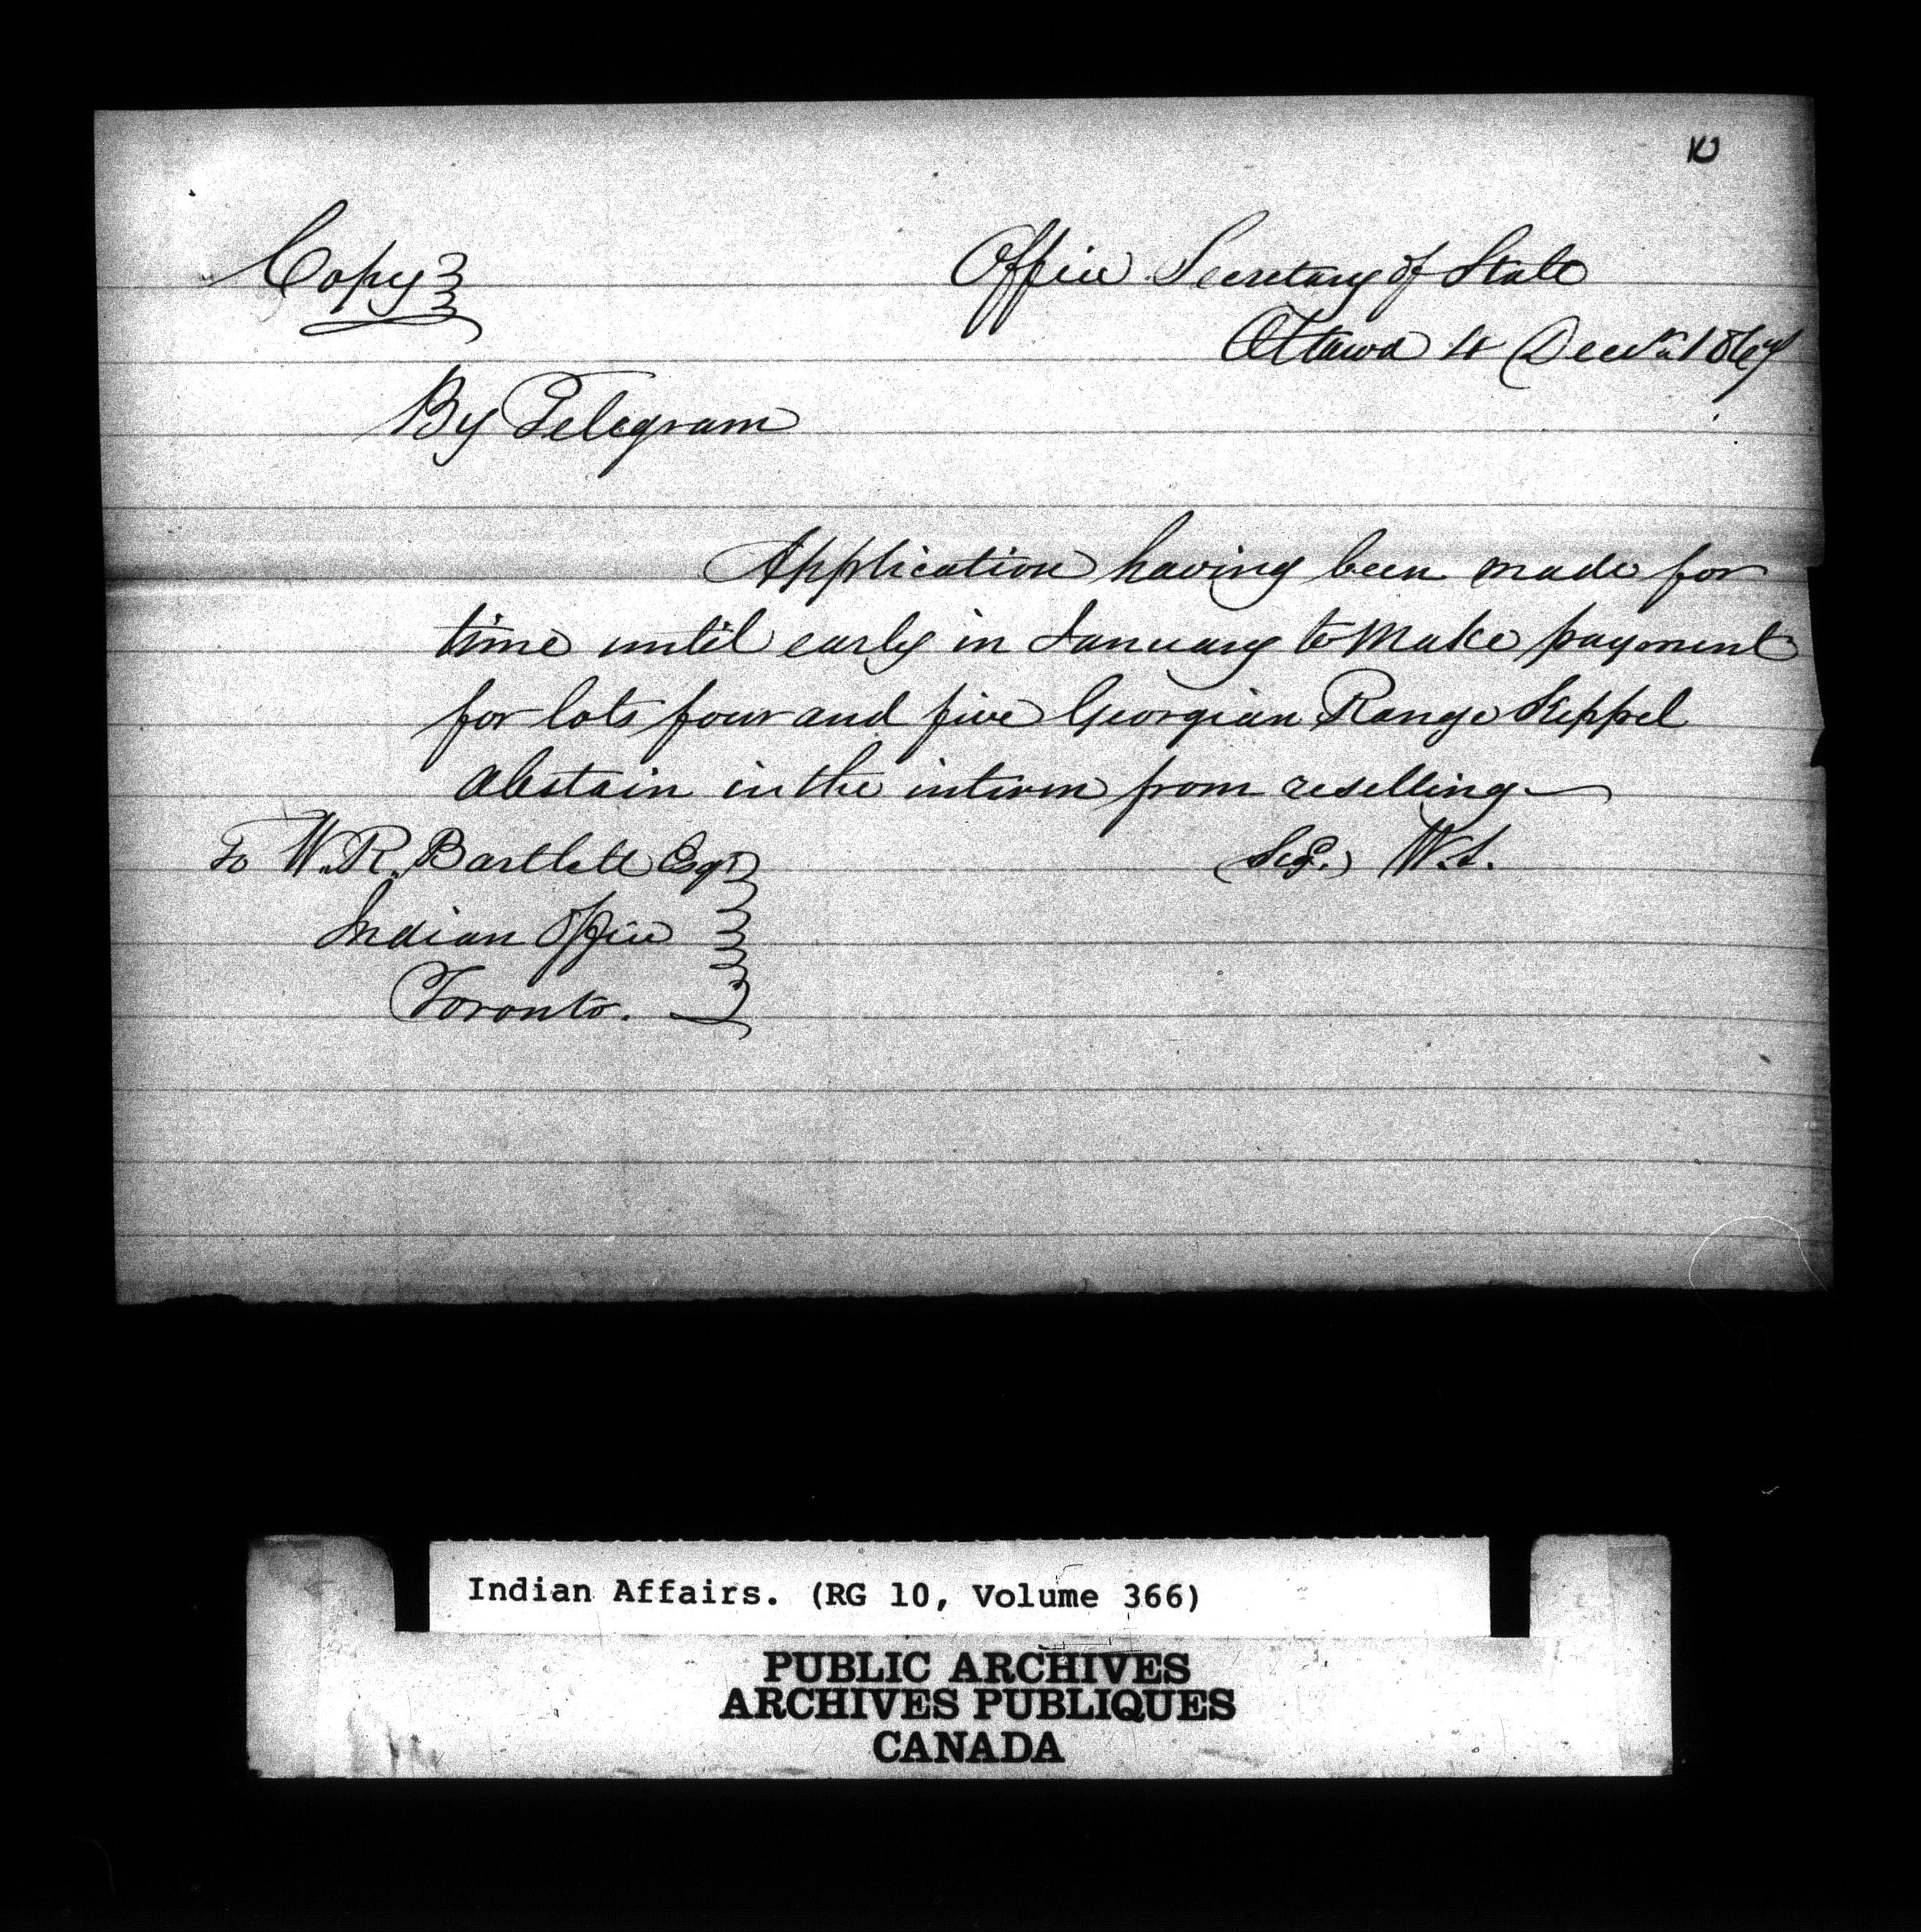 Copy
Office Secretary of State
Ottawa 4 Decr 1867
By Telegram
Application having been made for
time until early in January to make payment
for lots four and five Georgian Range Keppel
abstain in the interim from reselling
To W. R. Bartlett Esqr
(Sg.) W.S.
Indian Office
Toronto.
Indian Affairs. (RG 10, Volume 366)
PUBLIC ARCHIVES
ARCHIVES PUBLIQUES
CANADA